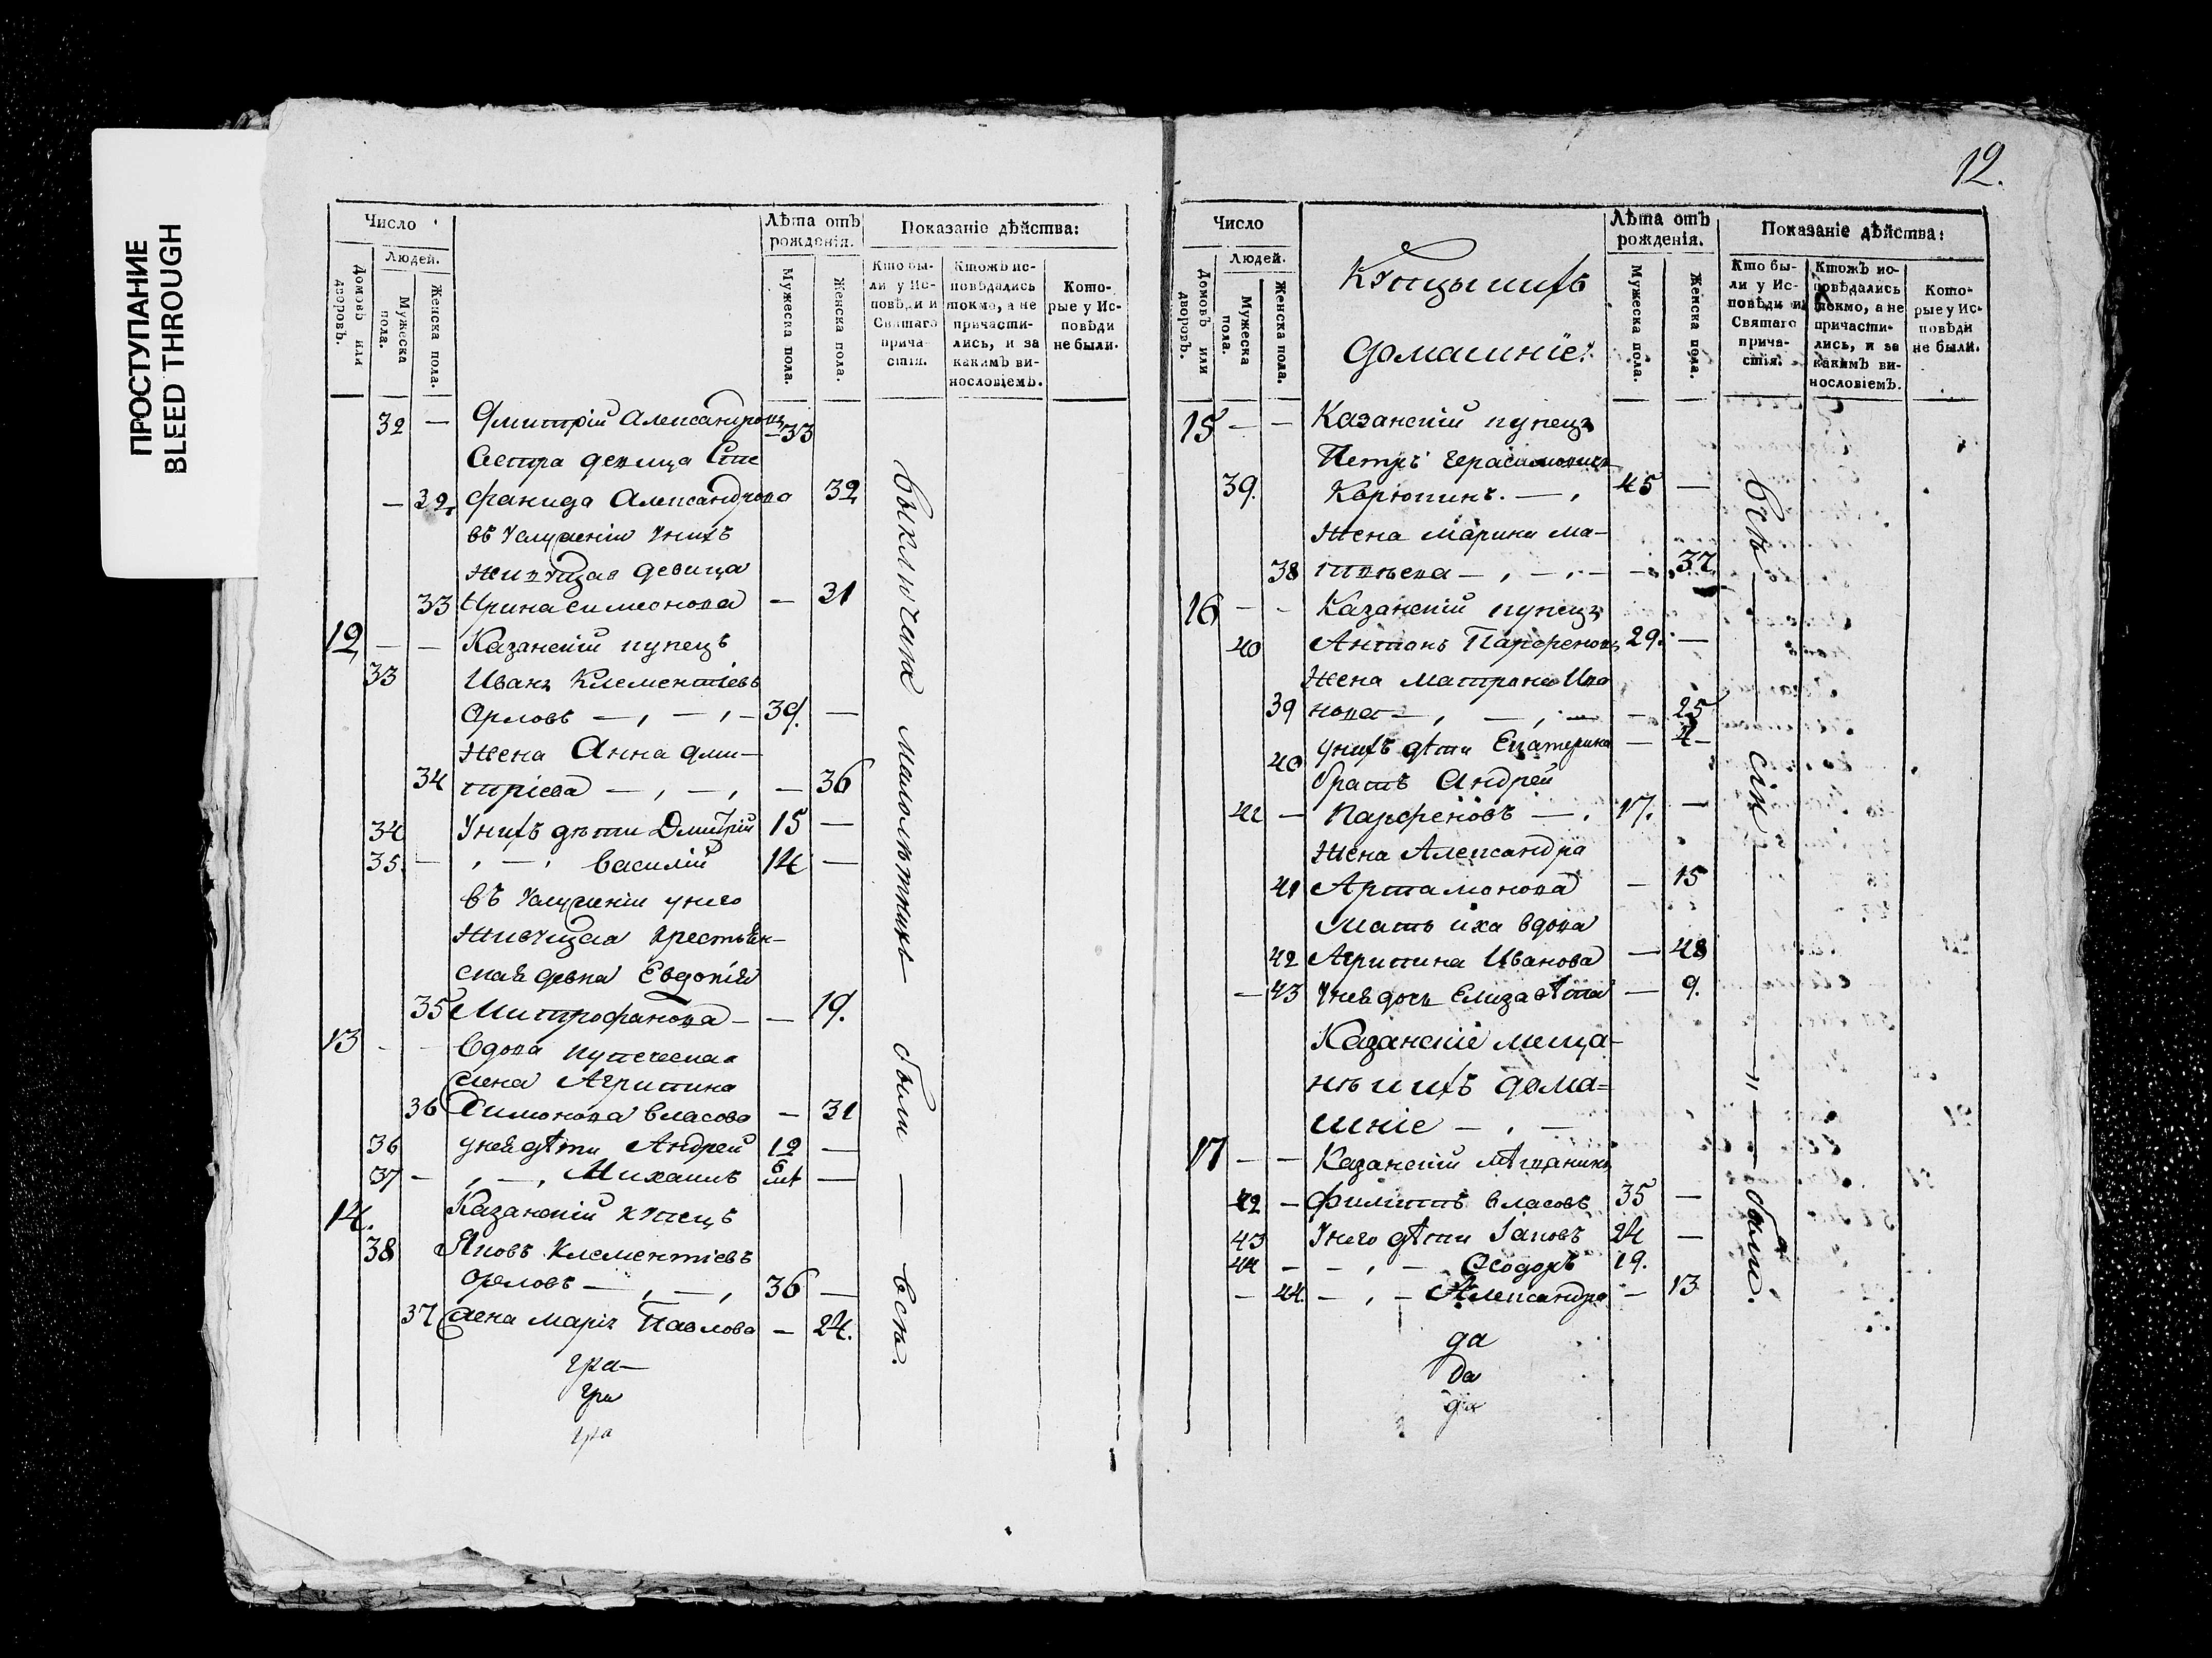 ПРОСТУПАНИЕ
BLEED THROUGH
Число
Людей.
Домовъ или дворовъ.
Мужеска пола.
Женска пола.
Лѣта отъ рожденія.
Мужеска пола.
Женска пола.
Показаніе дѣйства:
Кто бы-
ли у Ис-
повѣди и
Святаго
прича-
стія.
Ктожъ ис-
повѣдались
токмо, а не
причасти-
лись, и за
какимъ ви-
нословіемъ.
Кото-
рые у Ис-
повѣди
не были.
32 — Дмитрій Александровъ — 33
Сестра девица Сте
— 32 фанида Александрова 32
въ Услуженіи Унихъ
живущая девица
33 Ирина Симеонова — 31
12 — — Казанскій купецъ
33 Иванъ Клементіевъ
Орловъ — , — , — 39. —
жена Анна Дми—
34 тріева — , — , — 36
34 Унихъ дѣти Дмитрій 15 —
35. — , — , Василій 14 —
въ Услуженіи унего
живущая крестьян—
ская девка Евдокія
35 Митрофанова — — 19.
13 - - Вдова купеческая
жена Агрипина
36 Симонова Власова — 31
36 унея дѣти Андрей 12 —
37 — , — , Михаилъ 6 лѣт —
14. Казанскій купецъ
38 Яковъ Клементіевъ
Орловъ — , — , 36 —
37 жена Марія Павлова — 24.
гра—
гра
гра
выключая малолѣтныхъ были — всѣ.
12.
Число
Людей.
Домовъ или дворовъ.
Мужеска пола.
Женска пола.
Купцы ихъ
домашніе:
Лѣта отъ рожденія.
Мужеска пола.
Женска пола.
Показаніе дѣйства:
Кто бы-
ли у Ис-
повѣди и
Святаго
прича-
стія.
Ктожъ ис-
повѣдались
токмо, а не
причасти-
лись, и за
какимъ ви-
нословіемъ.
Кото-
рые у Ис-
повѣди
не были.
15 — — Казанскій купецъ
Петръ Герасимовичъ
39. Корюпинъ. — , 45 —
Жена Марина Ма—
38 твѣева — , — , — — 37
16 — - Казанскій купецъ
40 Антонъ Парфеновъ 29. —
Жена Матрона Ива
39 нова — , — , — — 25
40 унихъ дѣти Екатерина — 4 —
братъ Андрей
41 — Парфеновъ — . 17. —
Жена Александра
41 Артамонова — 15
Мать ихъ вдова
42 Агрипина Иванова — 48
— 43 Унея дочь Елизавѣта — 9.
Казанскіе меща—
нѣ и ихъ дома=
шніе — , —
17 — — Казанскій мѣщанинъ
42 — Филиппъ Власовъ 35 —
43 Унего дѣти Іаковъ 24 —
44 — — , — Ѳеодоръ 19.
— 44. — , — Александра — 13
да
да
да
всѣ — сіи — „ — были.